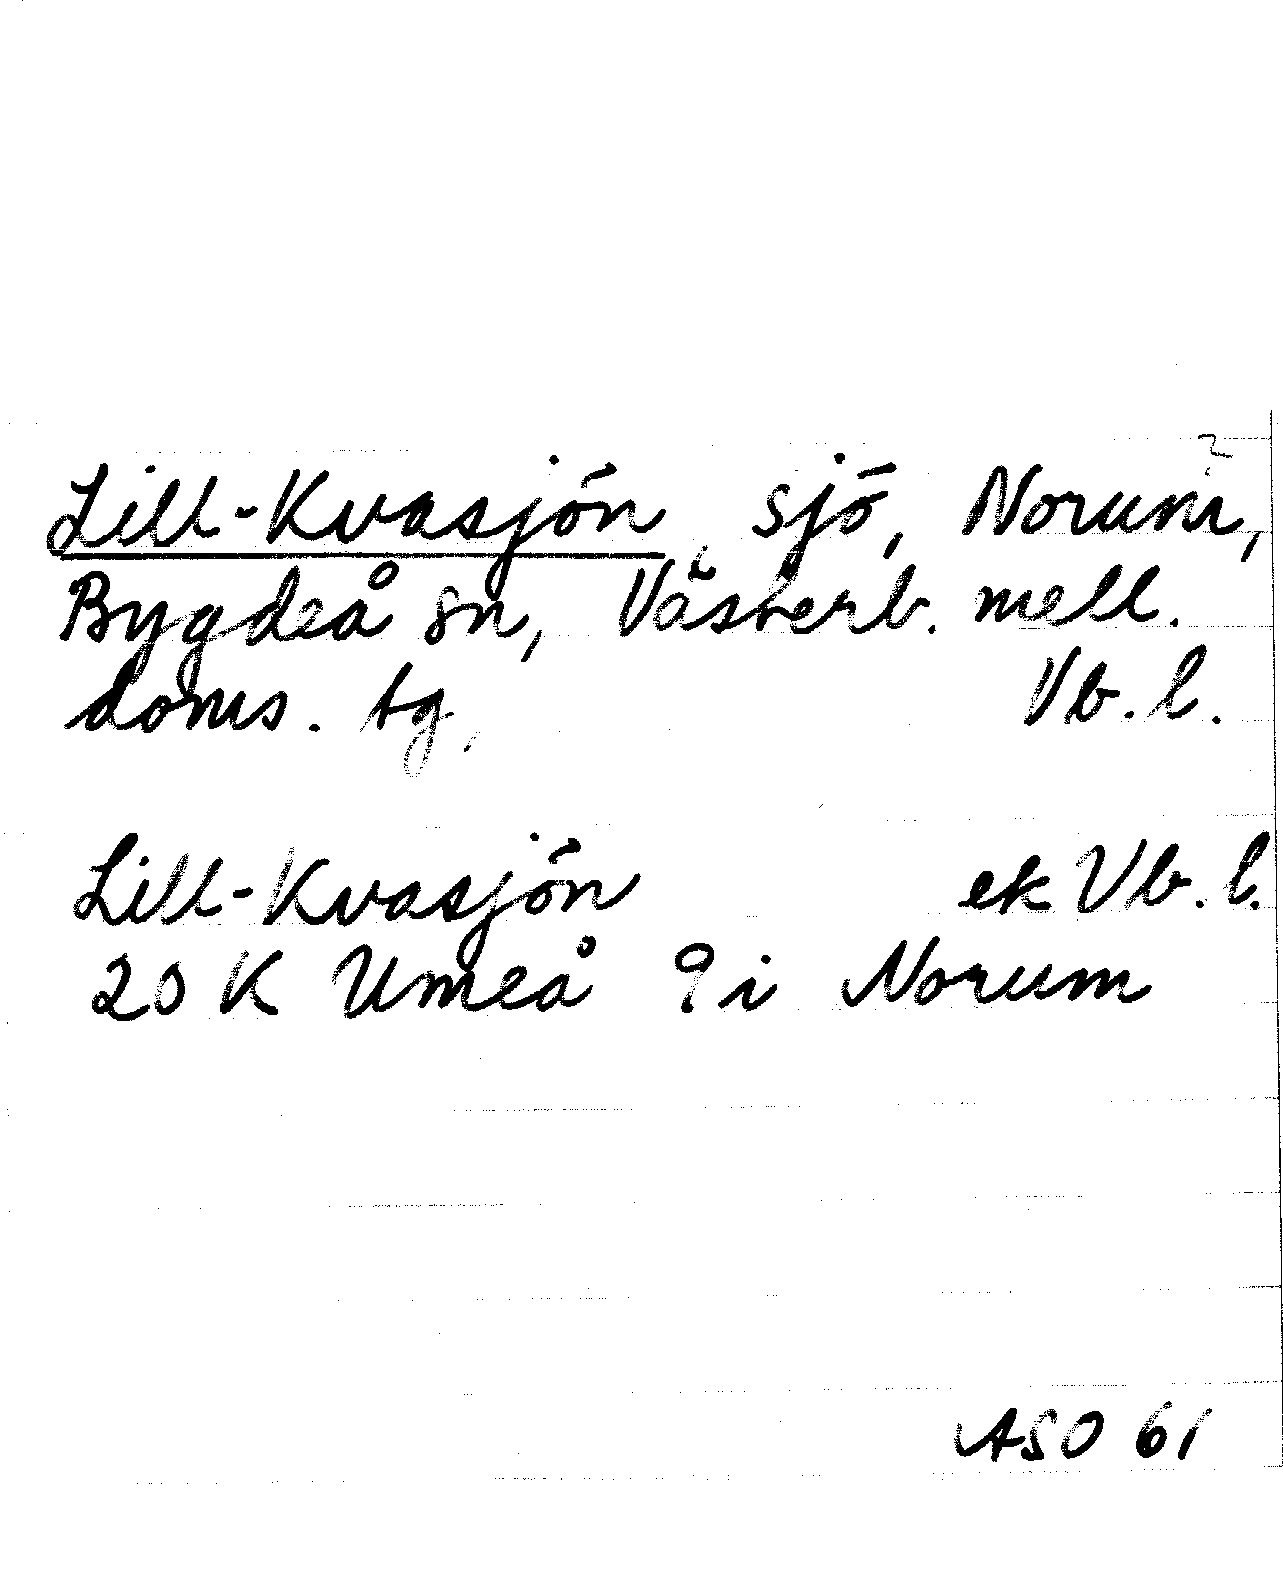 Lill-Kvasjön, sjö, Norum,
Bygdeå sn, Västerb. mell.
doms. tg, Vb. l.
Lill-Kvasjön ek Vb. l.
20 K Umeå 9 i Norum
ASO 61